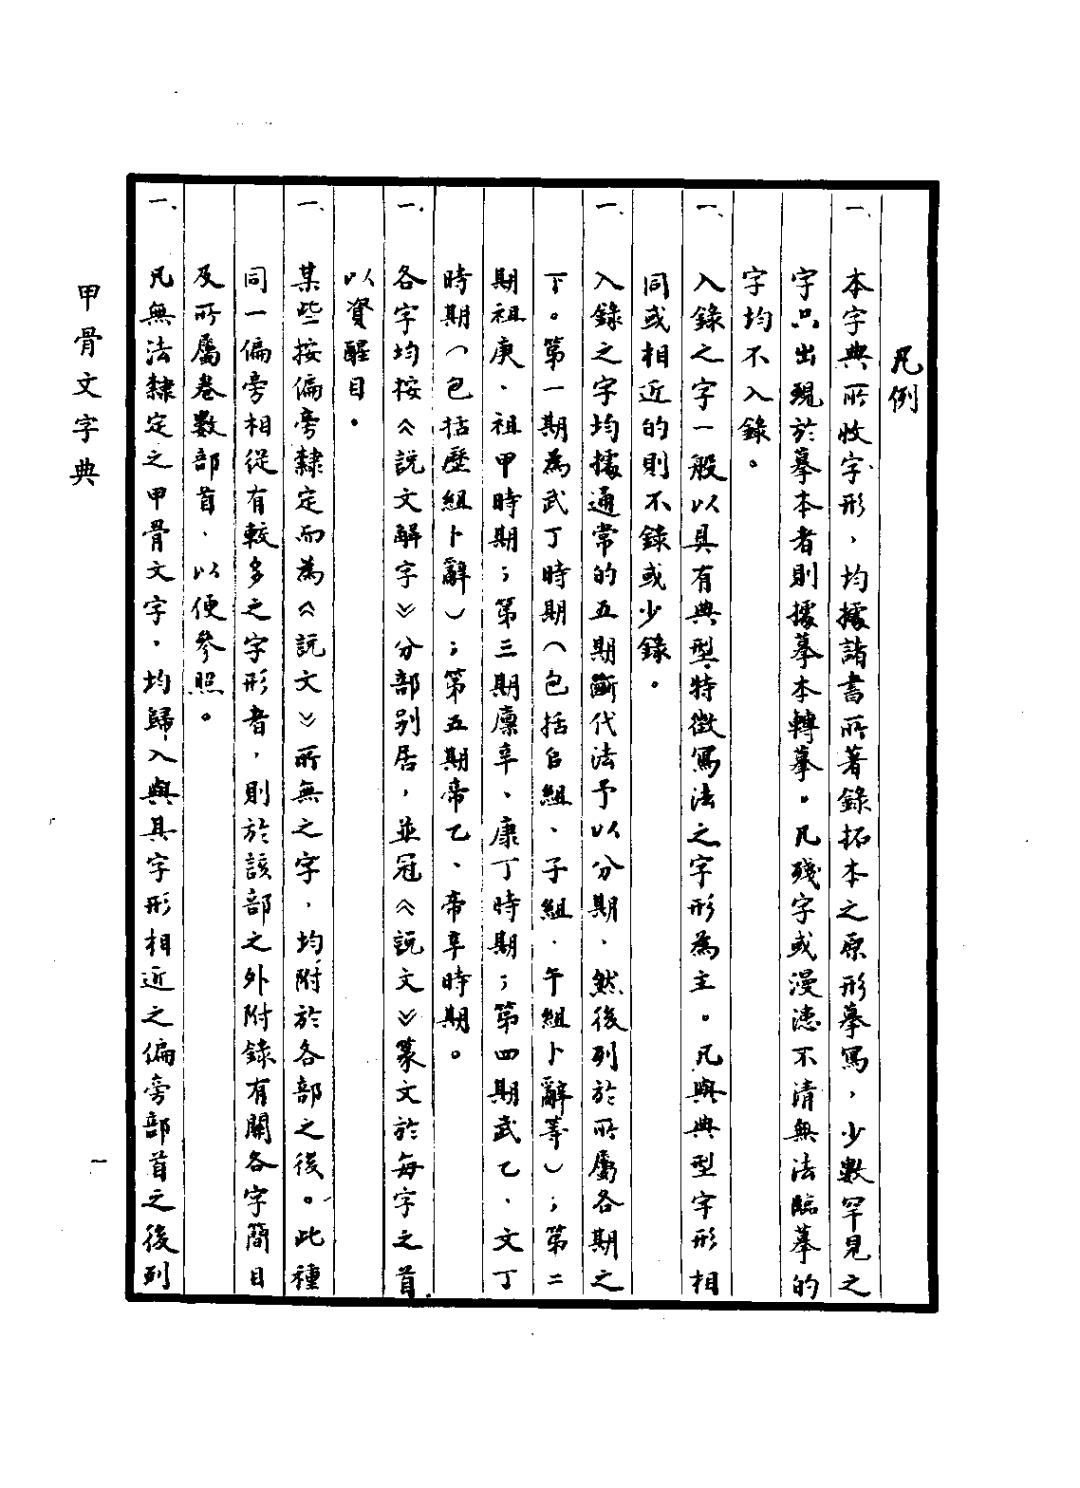 凡例
一、本字典所收字形，均據諸書所著錄拓本之原形摹寫，少數罕見之
字只出現於摹本者則據摹本轉摹。凡殘字或漫漶不清無法臨摹的
字均不入錄。
一、入錄之字一般以具有典型特徵寫法之字形為主。凡與典型字形相
同或相近的則不錄或少錄。
一、入錄之字均據通常的五期斷代法予以分期、然後列於所屬各期之
下。第一期為武丁時期（包括𠂤組、子組、午組卜辭等）；第二
期祖庚、祖甲時期；第三期廩辛、康丁時期；第四期武乙、文丁
時期（包括歷組卜辭）；第五期帝乙、帝辛時期。
一、各字均按《說文解字》分部別居，並冠《說文》篆文於每字之首
以資醒目。
一、某些按偏旁隸定而為《說文》所無之字，均附於各部之後。此種
同一偏旁相從有較多之字形者，則於該部之外附錄有關各字簡目
及所屬卷數部首，以便參照。
一、凡無法隸定之甲骨文字，均歸入與其字形相近之偏旁部首之後列
甲骨文字典
一